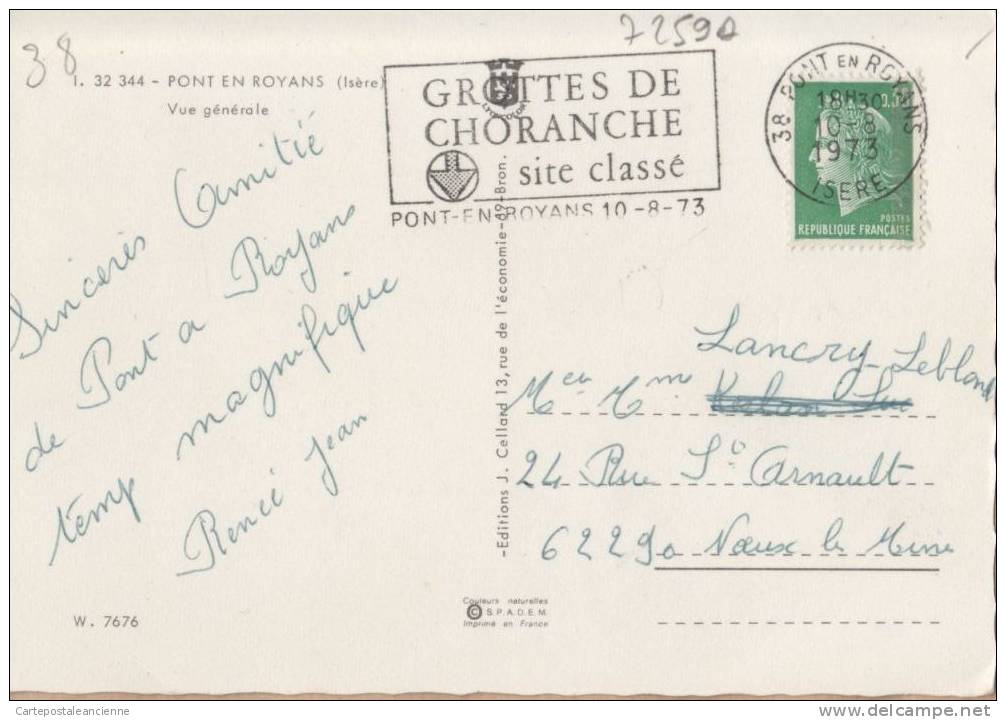 38
7259
I. 32 344 - PONT EN ROYANS (Isère)
Vue générale
GROTTES DE
CHORANCHE
site classé
PONT-EN-ROYANS 10-8-73
38 PONT EN ROYANS
18H30
10-8
1973
ISERE
POSTES
REPUBLIQUE FRANÇAISE
Sincères Camitié
de Pont a Royans
temp magnifique
Renée Jean
-Editions J. Cellard 13, rue de l'économie-69-Bron.
Lancry-Leblond
M et Mme
24 Rue St Arnault
62290 Nœux les Mine
W. 7676
Couleurs naturelles
© S.P.A.D.E.M.
Imprimé en France
Cartepostaleancienne
http://www.delcampe.net